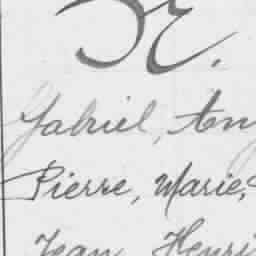 Gabriel, An
Pierre, Marie,
Jean Henri